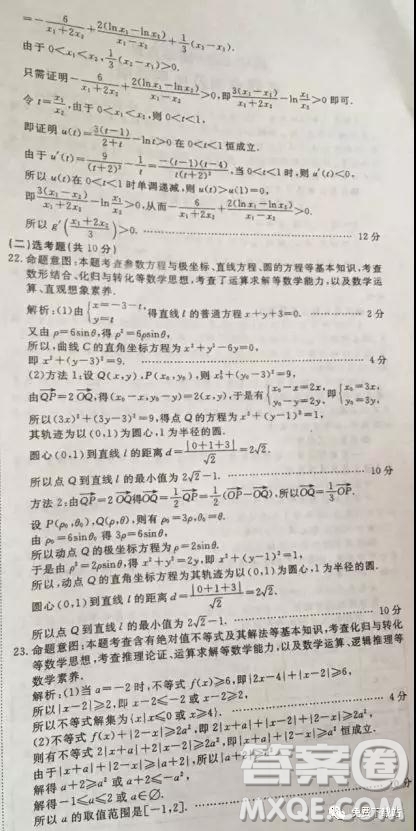 =-6/(x₁+2x₂)+2(lnx₁-lnx₂)/(x₁-x₂)+1/3(x₂-x₁).
由于0<x₁<x₂,1/3(x₂-x₁)>0.
只需证明-6/(x₁+2x₂)+2(lnx₁-lnx₂)/(x₁-x₂)>0,即3(x₁-x₂)/(x₁+2x₂)-ln x₁/x₂>0即可.
令t=x₁/x₂,由于0<x₁<x₂,则0<t<1.
即证明u(t)=3(t-1)/(2+t)-lnt>0在0<t<1恒成立.
由于u'(t)=9/(t+2)²-1/t=-(t-1)(t-4)/t(t+2)²,当0<t<1时,则u'(t)<0,
所以u(t)在0<t<1时单调递减,则u(t)>u(1)=0,
即3(x₁-x₂)/(x₁+2x₂)-ln x₁/x₂>0,从而-6/(x₁+2x₂)+2(lnx₁-lnx₂)/(x₁-x₂)>0.
所以g'((x₁+2x₂)/3)>0. 12分
(二)选考题(共10分)
22.命题意图:本题考查参数方程与极坐标、直线方程、圆的方程等基本知识,考查
数形结合、化归与转化等数学思想,考查了运算求解等数学能力,以及数学运
算、直观想象素养.
解析:(1)由{x=-3-t, y=t 得直线l的普通方程x+y+3=0. 2分
又由ρ=6sinθ,得ρ²=6ρsinθ,
所以,曲线C的直角坐标方程为x²+y²-6y=0,
即x²+(y-3)²=9. 4分
(2)方法1:设Q(x,y),P(x₀,y₀),则x₀²+(y₀-3)²=9,
由QP=2OQ,得(x₀-x,y₀-y)=2(x,y),于是有{x₀-x=2x, y₀-y=2y, 即{x₀=3x, y₀=3y,
所以(3x)²+(3y-3)²=9,得点Q的方程为x²+(y-1)²=1,
其轨迹为以(0,1)为圆心,1为半径的圆.
圆心(0,1)到直线l的距离d=|0+1+3|/√2=2√2.
所以点Q到直线l的最小值为2√2-1. 10分
方法2:由QP=2OQ得OQ=1/2QP=1/2(OP-OQ),所以OQ=1/3OP.
设P(ρ₀,θ₀),Q(ρ,θ),则有ρ₀=3ρ,θ₀=θ.
由ρ₀=6sinθ₀得3ρ=6sinθ,
所以动点Q的极坐标方程为ρ=2sinθ.
于是由ρ²=2ρsinθ,得x²+y²=2y,即x²+(y-1)²=1,
所以,动点Q的直角坐标方程为其轨迹为以(0,1)为圆心,1为半径的圆.
圆心(0,1)到直线l的距离d=|0+1+3|/√2=2√2.
所以点Q到直线l的最小值为2√2-1. 10分
23.命题意图:本题考查含有绝对值不等式及其解法等基本知识,考查化归与转化
等数学思想,考查推理论证、运算求解等数学能力,以及数学运算、逻辑推理等
数学素养.
解析:(1)当a=-2时,不等式f(x)≥6,即|2x-4|+|x-2|≥6,
所以|x-2|≥2,即x-2≤-2或x-2≥2,
所以不等式解集为{x|x≤0或x≥4}. 4分
(2)不等式f(x)+|x+a|+|2-x|≥2a²,即2|x+a|+2|2-x|≥2a²,
则有不等式2|x+a|+2|2-x|≥2a²,即|x+a|+|2-x|≥a²恒成立.
由于|x+a|+|2-x|≥|a+2|,所以|a+2|
解得a+2≥a²或a+2≤-a²,
解得-1≤a≤2或a∈∅.
所以a的取值范围是[-1,2].
答案圈
MXQE.COM